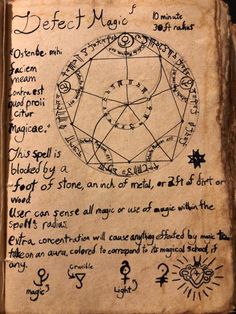 Defect Magic
10 minute
30ft radius
"Ostende mihi
faciem
meam
contra est
quod proii
citur
Magicae."
This Spell is
blocked by a
foot of stone, an inch of metal, or 3ft of dirt or
wood
User can sense all magic or use of magic within the
spells radius.
extra concentration will cause anything affected by magic to
take on an aura, colored to correspond to its magical school, if
any.
Crucible
magic
Light